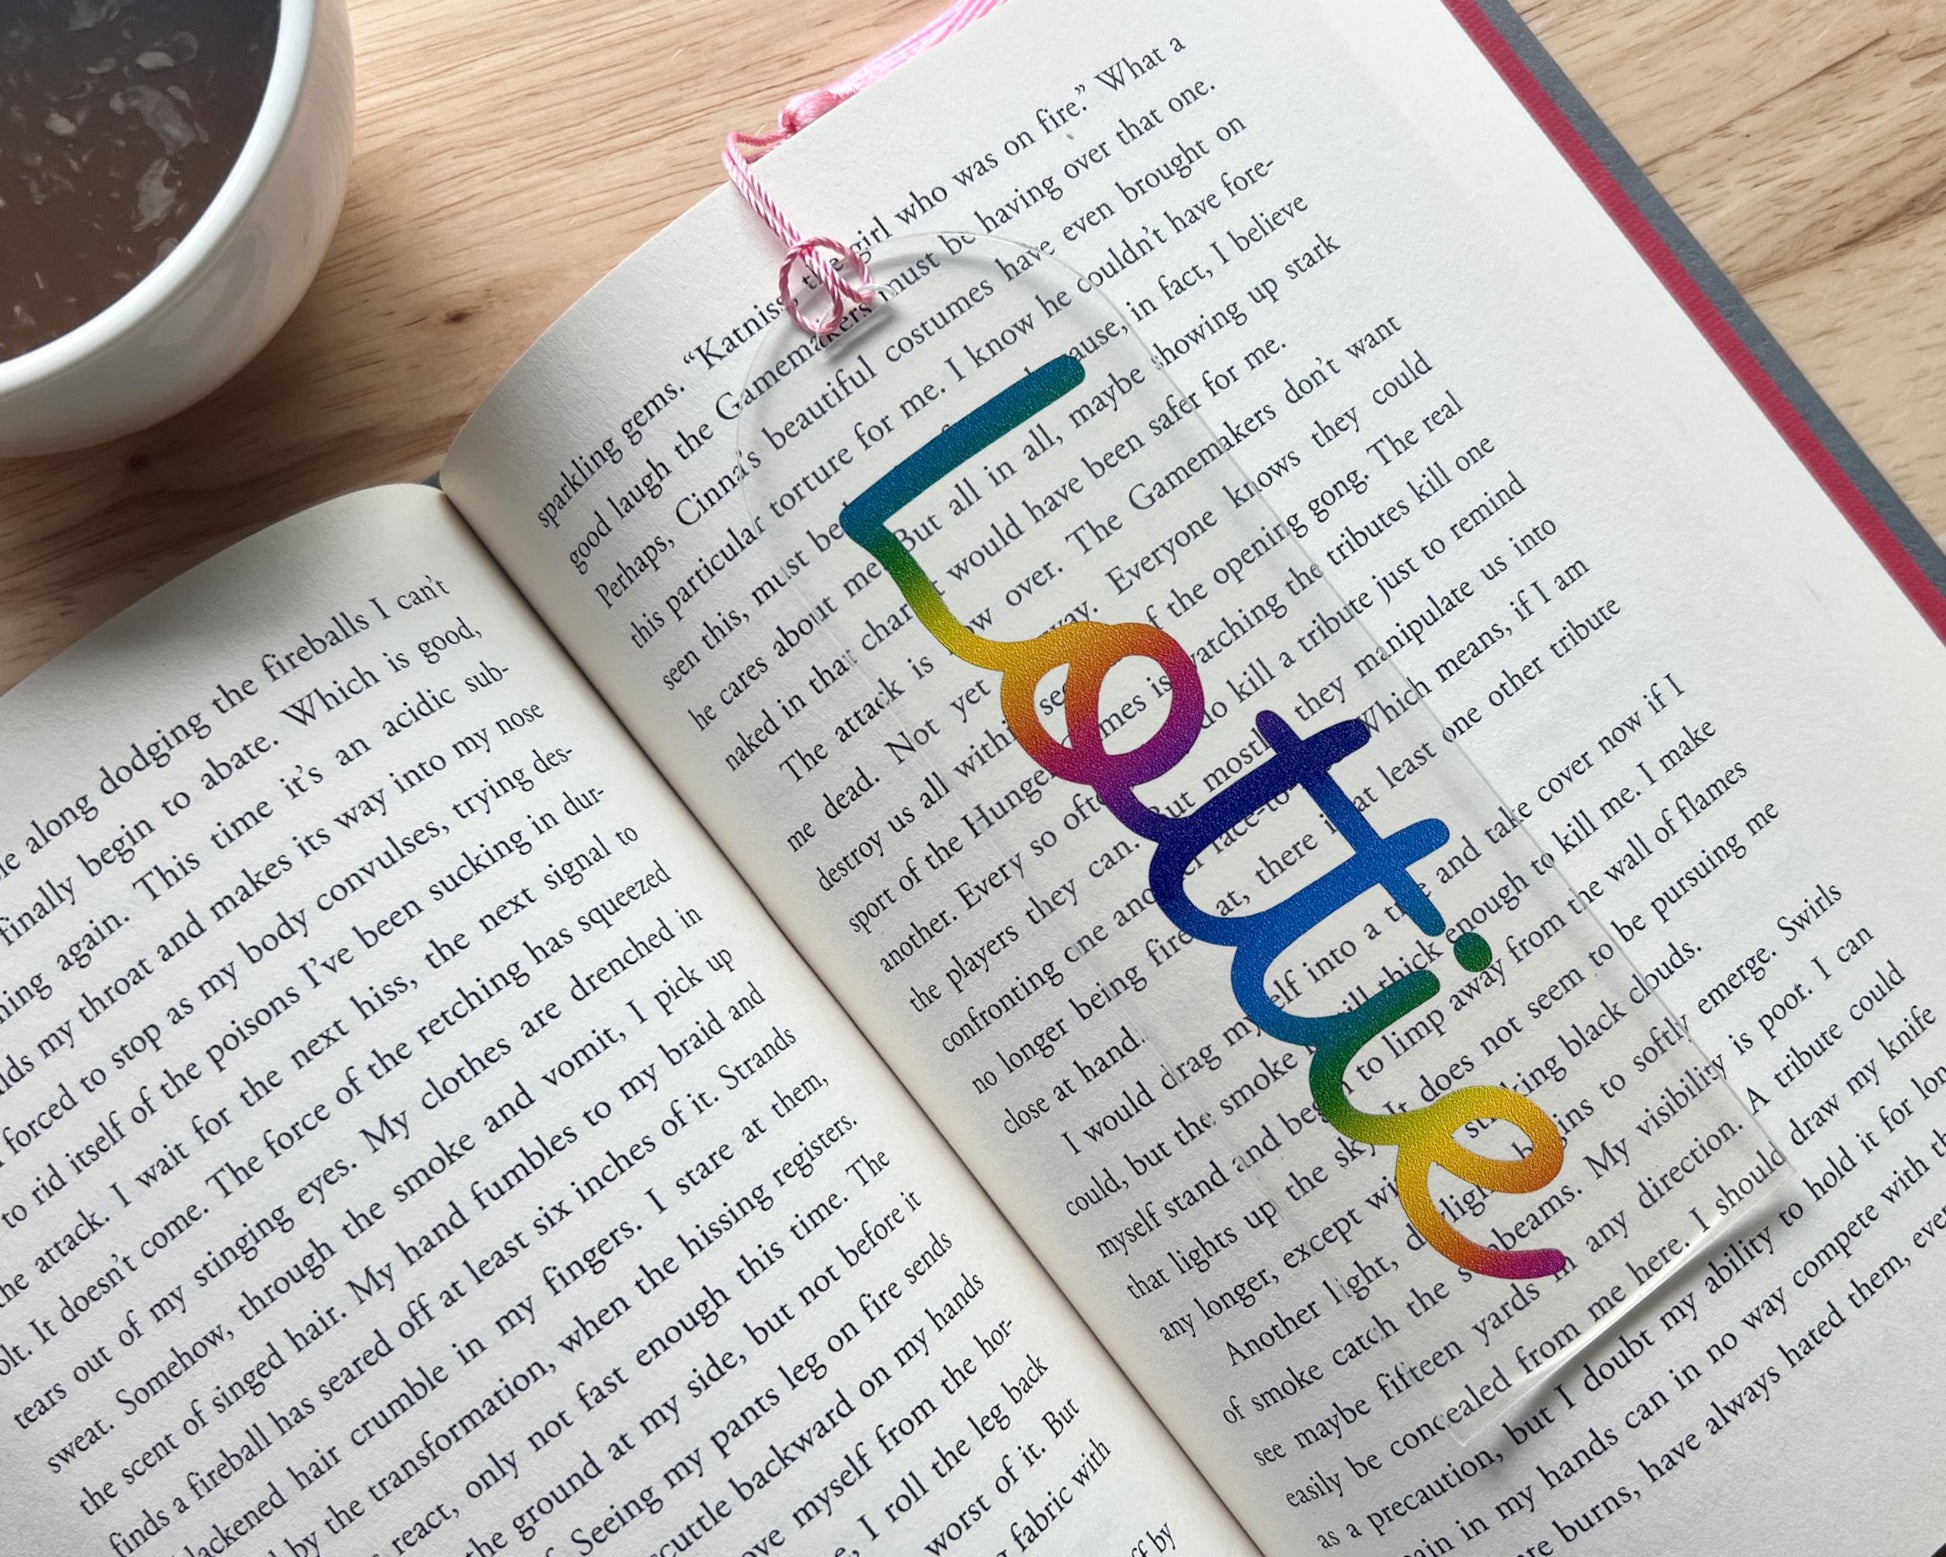 le along dodging the fireballs I can't
finally begin to abate. Which is good,
again. This time it's an acidic sub-
my throat and makes its way into my nose
forced to stop as my body convulses, trying des-
to rid itself of the poisons I've been sucking in dur-
the attack. I wait for the next hiss, the next signal to
It doesn't come. The force of the retching has squeezed
tears out of my stinging eyes. My clothes are drenched in
sweat. Somehow, through the smoke and vomit, I pick up
the scent of singed hair. My hand fumbles to my braid and
finds a fireball has seared off at least six inches of it. Strands
hair crumble in my fingers. I stare at them,
by the transformation, when the hissing registers.
react, only not fast enough this time. The
the ground at my side, but not before it
Seeing my pants leg on fire sends
backward on my hands
myself from the hor-
I roll the leg back
worst of it. But
fabric with
by
sparkling gems. “Katniss, the girl who was on fire.” What a
good laugh the Gamemakers must be having over that one.
Perhaps, Cinna's beautiful costumes have even brought on
this particular torture for me. I know he couldn't have fore-
seen this, must be in fact, I believe
he cares about me. But all in all, maybe showing up stark
naked in that would have been safer for me.
The attack is now over. The Gamemakers don't want
me dead. Not yet Everyone knows they could
destroy us all within of the opening gong. The real
sport of the Hunger Games is watching the tributes kill one
another. Every so often do kill a tribute just to remind
the players they can. But mostly they manipulate us into
confronting one another face-to Which means, if I am
no longer being fired at, there is at least one other tribute
close at hand.
I would drag myself into a tree and take cover now if I
could, but the smoke is still thick enough to kill me. I make
myself stand and begin to limp away from the wall of flames
that lights up the sky. It does not seem to be pursuing me
any longer, except black clouds.
Another light, begins to softly emerge. Swirls
of smoke catch the sunbeams. My visibility is poor. I can
see maybe fifteen yards in any direction. A tribute could
easily be concealed from me here. I should draw my knife
as a precaution, but I doubt my ability to hold it for
in my hands can in no way compete with
burns, have always hated them,
Lottie